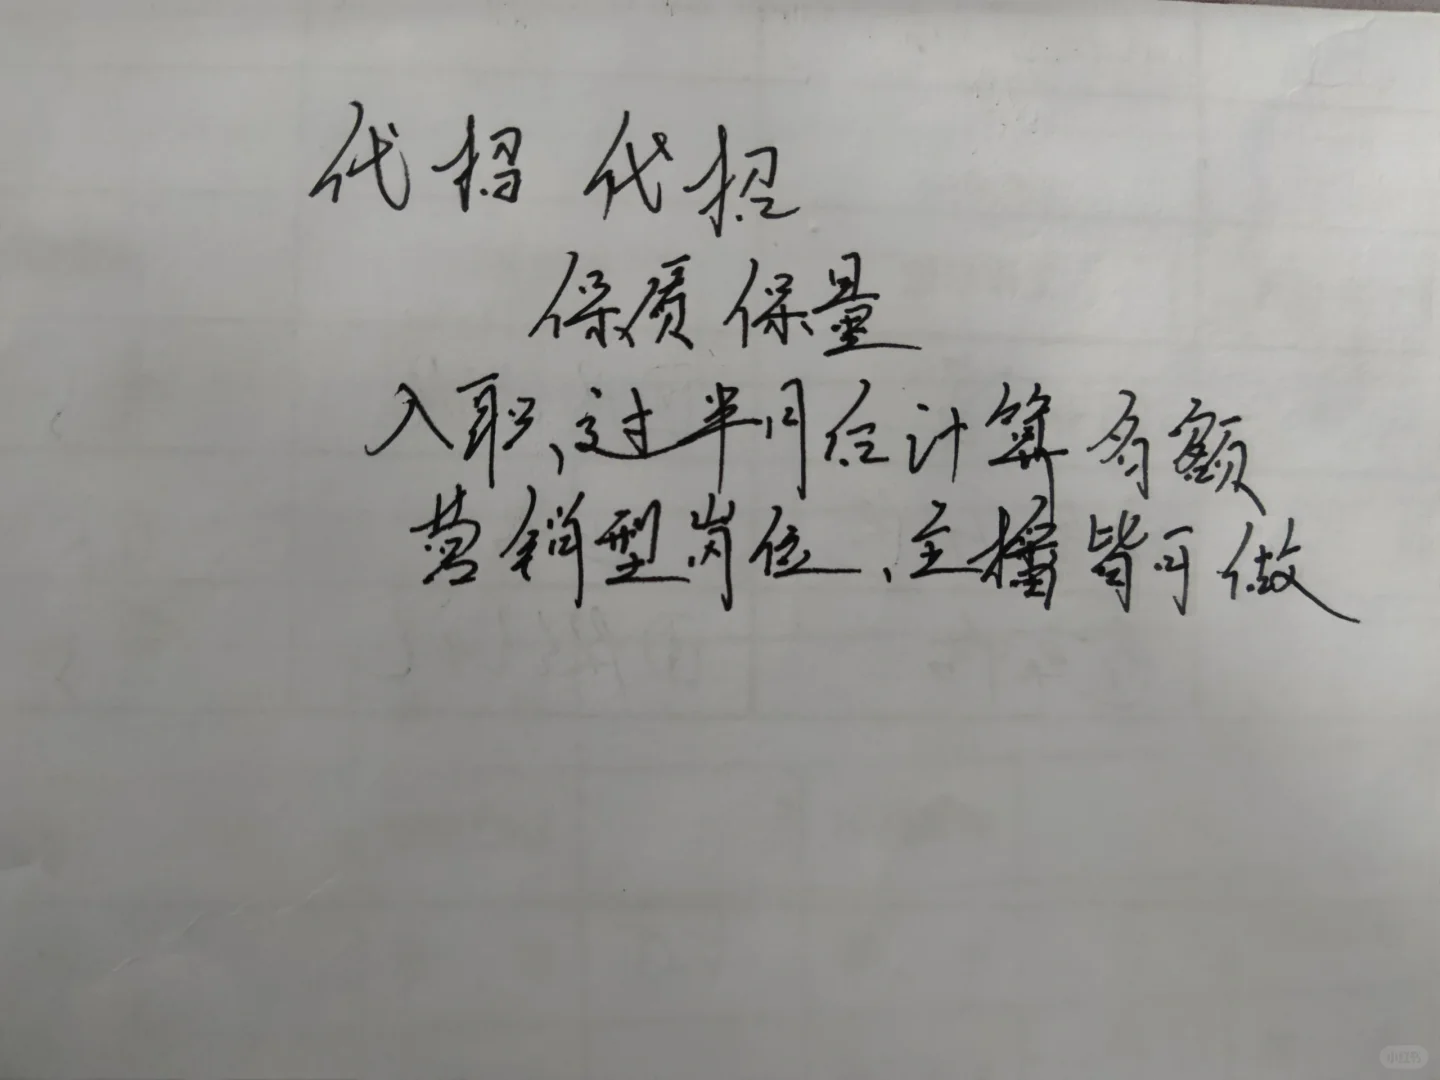 代招 代招
保质保量
入职,过半月后计算有额
营销型岗位、主播皆可做
小红书